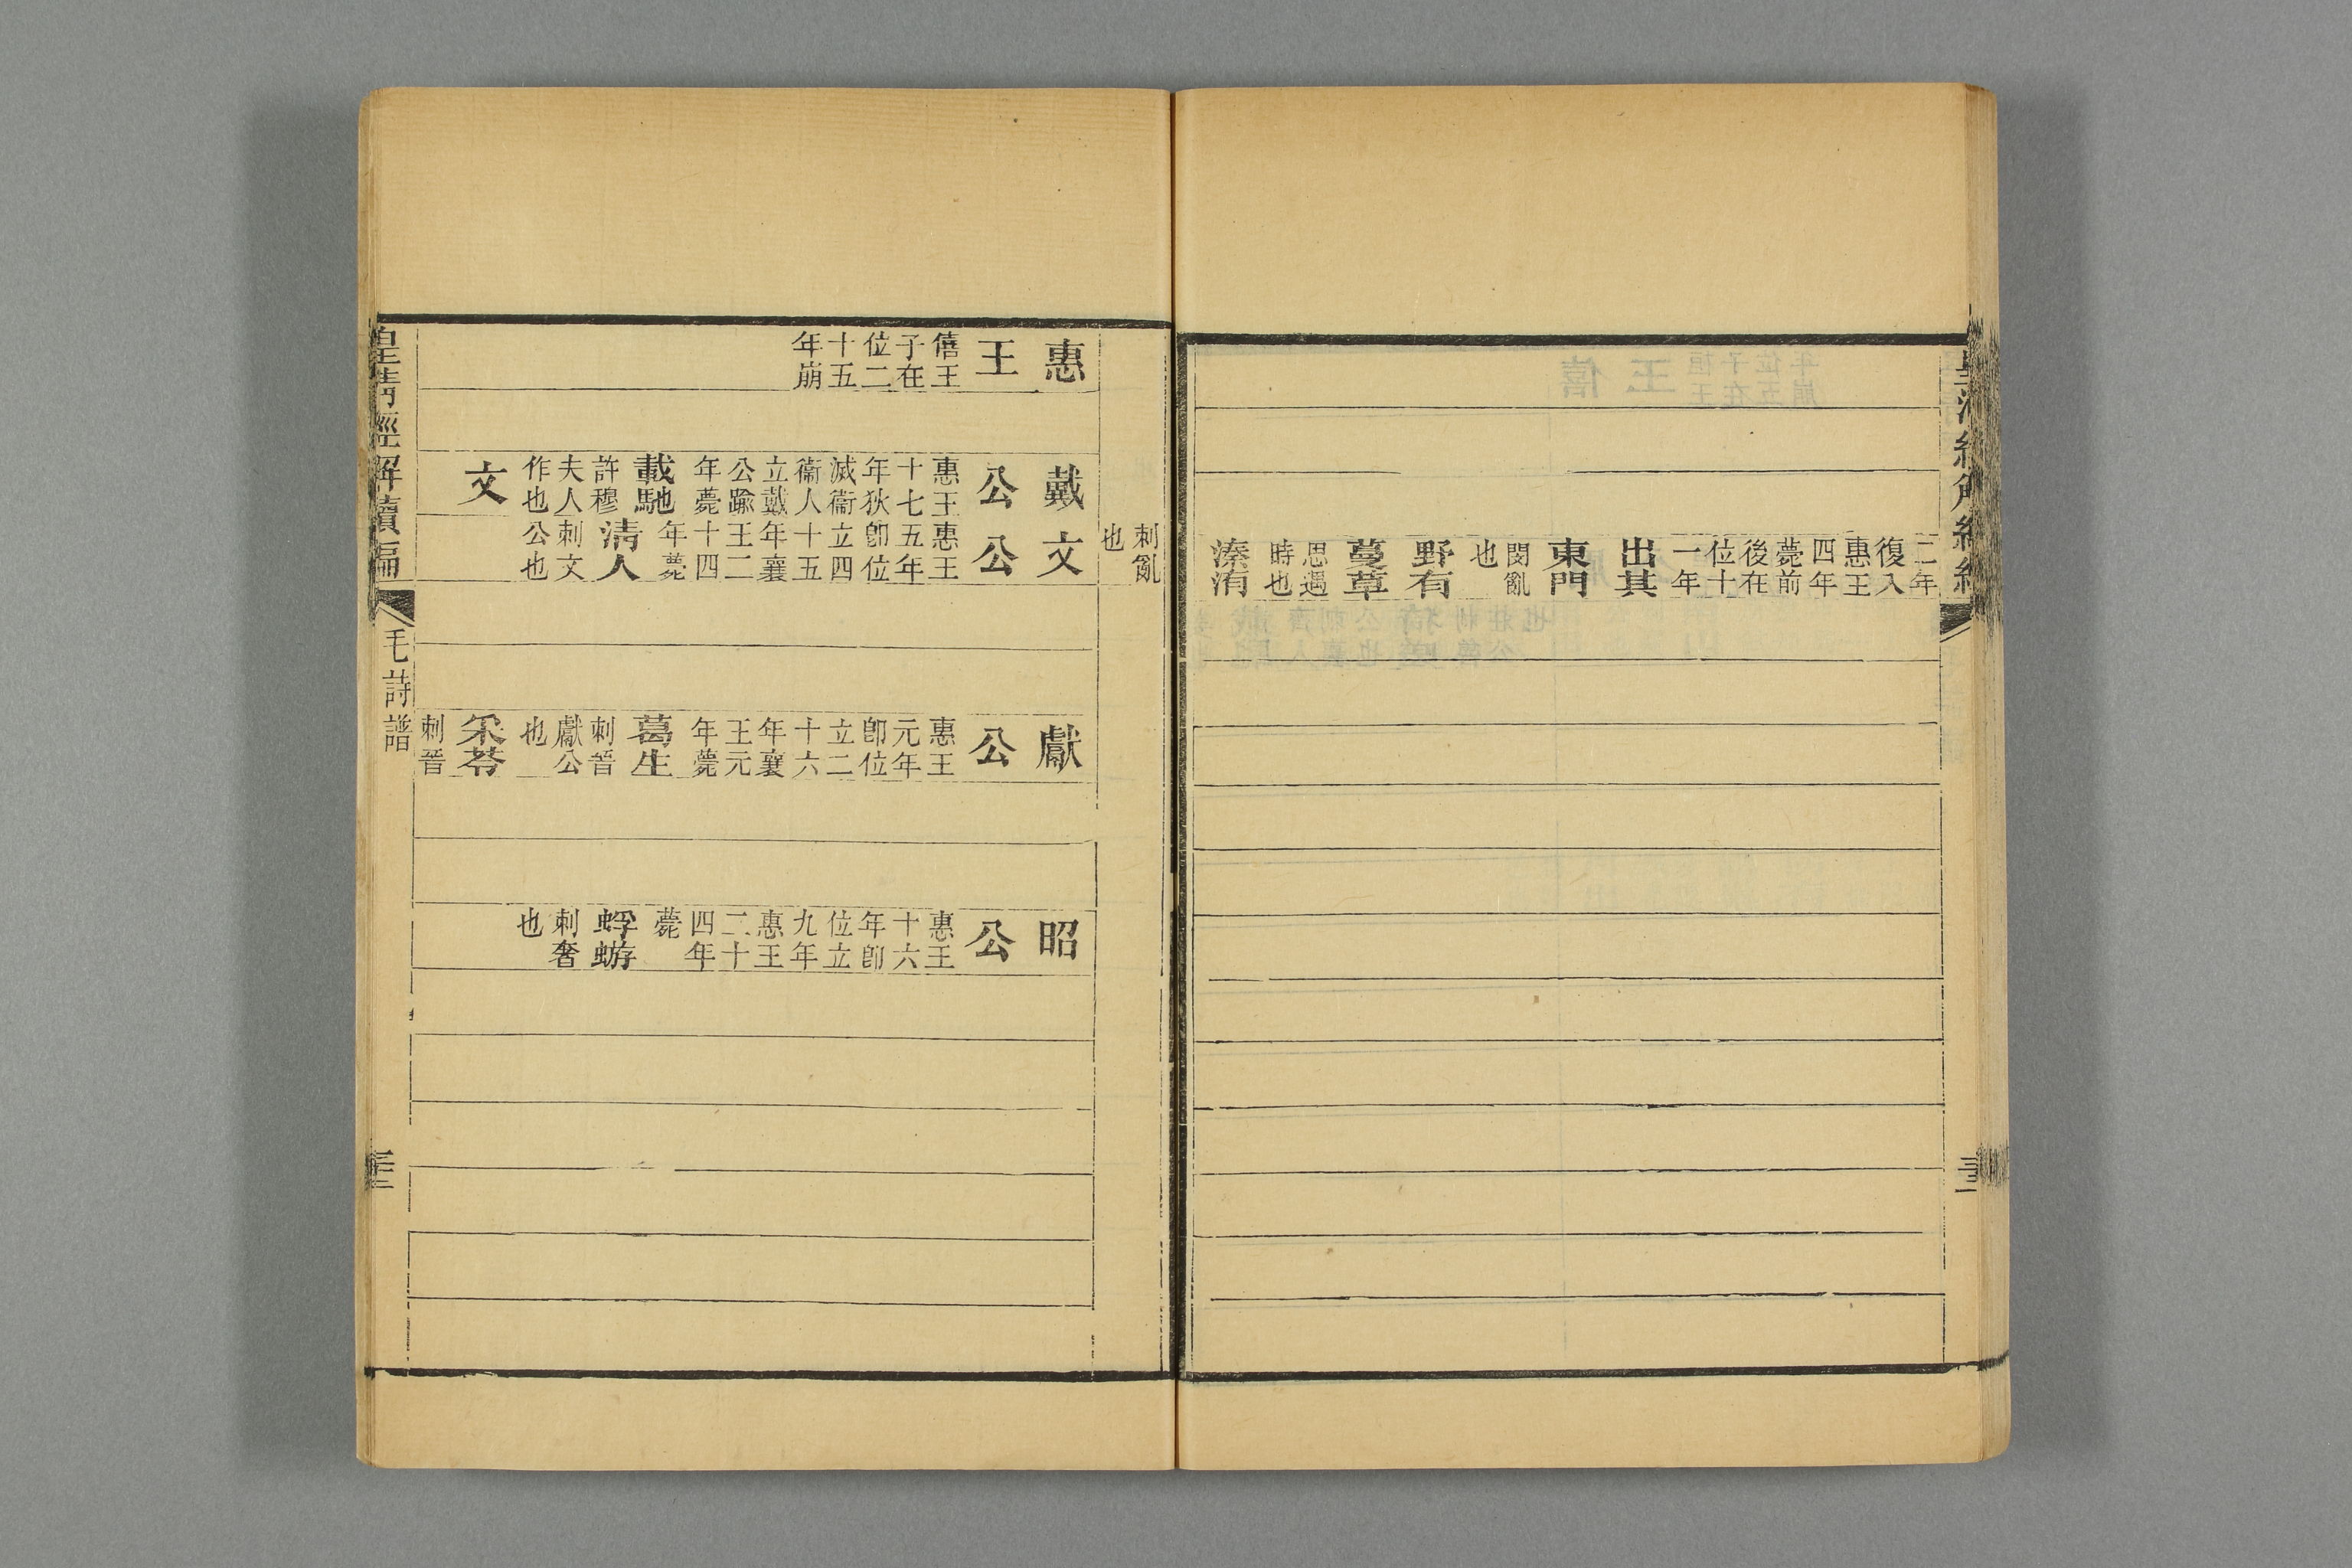 二年復入惠王四年薨前後在位十一年
出其東門
閔亂也
野有蔓草
思遇時也
溱洧
刺亂也
惠王
僖王子在位二十五年崩
戴公
惠王十七年狄滅衞衞人立戴公踰年薨
載馳
許穆夫人作也
文
文公
惠王五年卽位立四十五年襄王二十四年薨
清人
刺文公也
獻公
惠王元年卽位立二十六年襄王元年薨
葛生
刺晉獻公也
采苓
刺晉
昭公
惠王十六年卽位立九年惠王二十四年薨
蜉蝣
刺奢也
皇清經解續編
毛詩譜